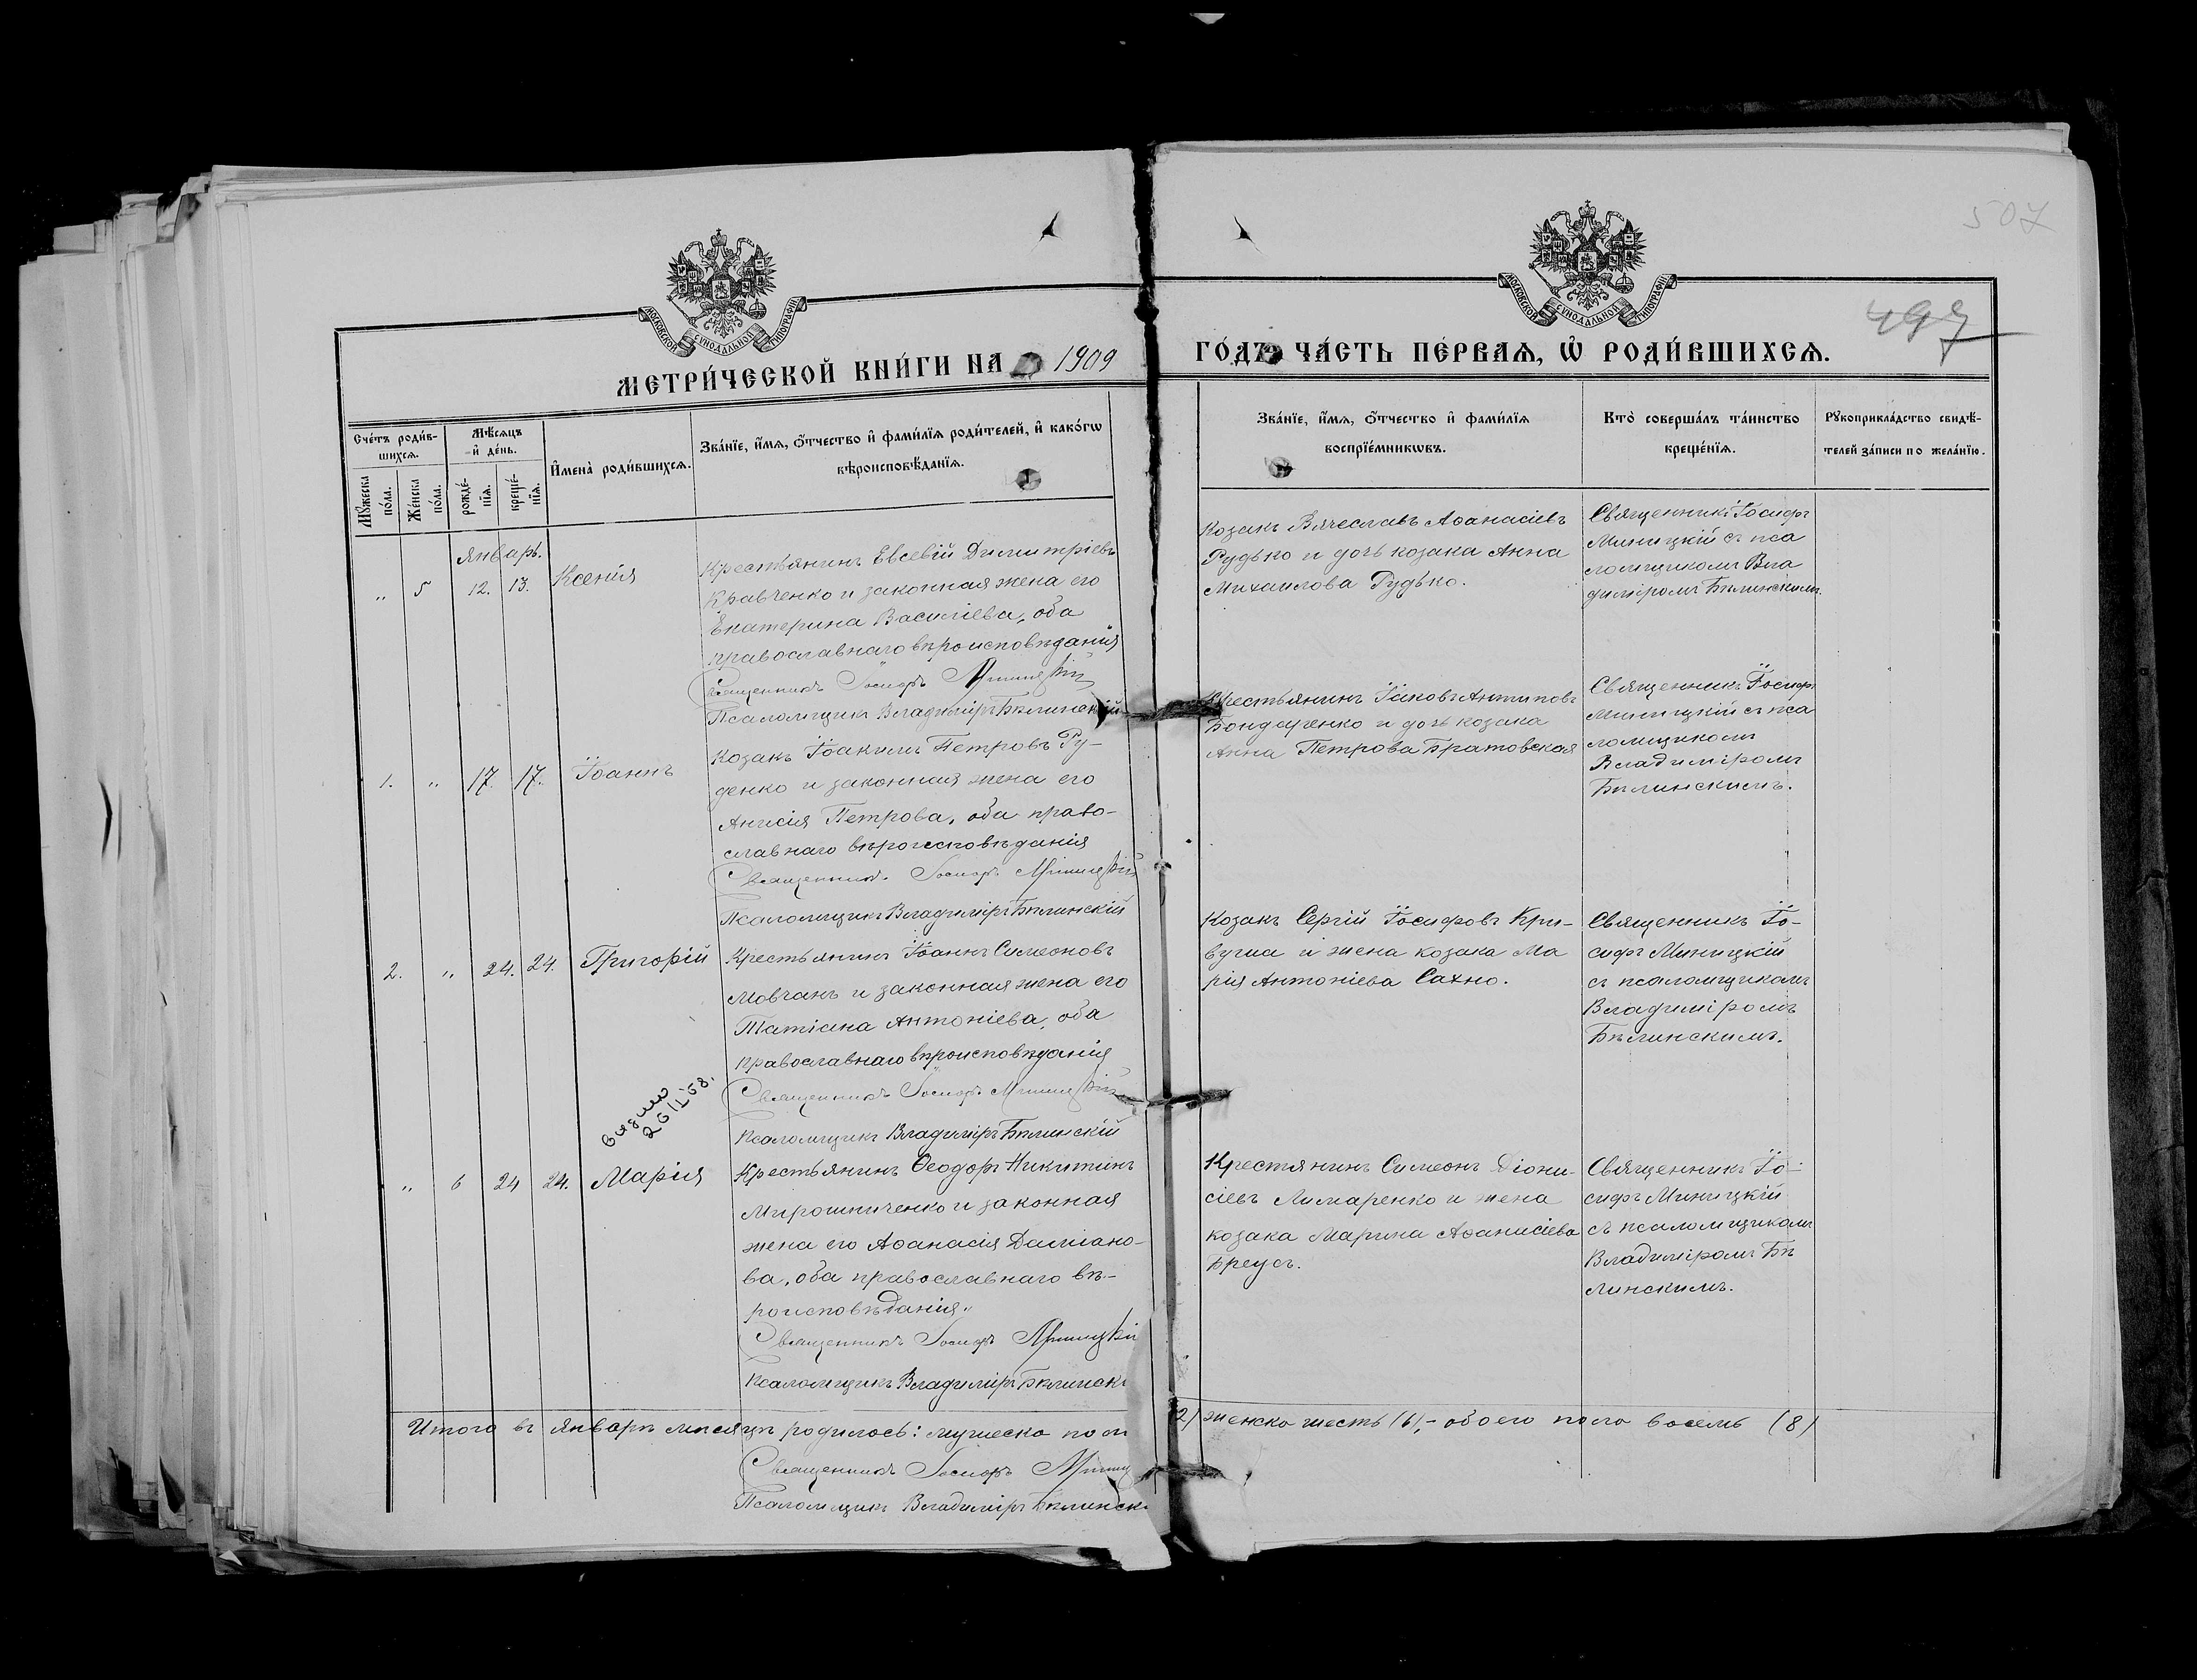 507
497
МОСКОВСКОЙ СѴНОДАЛЬНОЙ ТИПОГРАФІИ
МОСКОВСКОЙ СѴНОДАЛЬНОЙ ТИПОГРАФІИ
МЕТРИ́ЧЕСКОЙ КНИ́ГИ НА 1909
ГО́ДЪ ЧА́СТЬ ПЕ́РВАѦ, Ѡ҆ РОДИ́ВШИХСѦ.
Сче́тъ роди́в-
шихсѧ.
Мꙋ́жеска
по́ла.
Же́нска
по́ла.
Мѣ́сѧцъ
и҆ де́нь.
рожде́-
нїѧ.
креще́-
нїѧ.
И҆мена̀ роди́вшихсѧ.
Зва́нїе, и҆́мѧ, ѻ҆́тчество и҆ фами́лїѧ роди́телей, и҆ како́гѡ
вѣроисповѣ́данїѧ.
Зва́нїе, и҆́мѧ, ѻ҆́тчество и҆ фами́лїѧ
воспрїе́мникѡвъ.
Кто̀ соверша́лъ та́инство
креще́нїѧ.
Рꙋкоприкла́дство свидѣ́-
телей за́писи по жела́нїю.
Январь.
„ 5 12. 13. Ксенія
Крестьянинъ Евсевій Димитріевъ
Кравченко и законная жена его
Екатерина Василіева, оба
православнаго вѣроисповѣданія
Священникъ Іосифъ Миницкій
Псаломщикъ Владиміръ Бѣлинскій
Козакъ Вячеславъ Аѳанасіевъ
Рудько и дочь козака Анна
Михаилова Рудько.
Священникъ Іосифъ
Миницкій съ пса
ломщикомъ Вла
диміромъ Бѣлинскимъ.
1. „ 17. 17. Іоаннъ
Козакъ Іоакимъ Петровъ Ру-
денко и законная жена его
Анисія Петрова, оба право-
славнаго вѣроисповѣданія
Священникъ Іосифъ Миницкій
Псаломщикъ Владиміръ Бѣлинскій
Крестьянинъ Іаковъ Антиповъ
Бондаренко и дочь козака
Анна Петрова Братовская
Священникъ Іосифъ
Миницкій съ пса
ломщикомъ
Владиміромъ
Бѣлинскимъ.
2. „ 24. 24. Григорій
Крестьянинъ Іоаннъ Симеоновъ
Мовчанъ и законная жена его
Татіана Антоніева, оба
православнаго вѣроисповѣданія
Священникъ Іосифъ Миницкій
Псаломщикъ Владиміръ Бѣлинскій
Козакъ Сергій Іосифовъ Кри-
вуша и жена козака Ма
рія Антоніева Сахно.
Священникъ Іо-
сифъ Миницкій
съ псаломщикомъ
Владиміромъ
Бѣлинскимъ.
„ 6 24 24. Марія
Крестьянинъ Ѳеодоръ Никитинъ
Мирошниченко и законная
жена его Аѳанасія Даміано-
ва, оба православнаго вѣ-
роисповѣданія„
Священникъ Іосифъ Миницкій
Псаломщикъ Владиміръ Бѣлинскі
Крестянинъ Симеонъ Діони-
сіевъ Лимаренко и жена
козака Марина Аѳанасіева
Бреусъ.
Священникъ Іо-
сифъ Миницкій
съ псаломщикомъ
Владиміромъ Бѣ
линскимъ.
Итого въ Январѣ мѣсяцѣ родилось: мужеска пол
2) женска шесть (6),- обоего пола восемь (8)
Священникъ Іосифъ Миниц
Псаломщикъ Владиміръ Бѣлинск